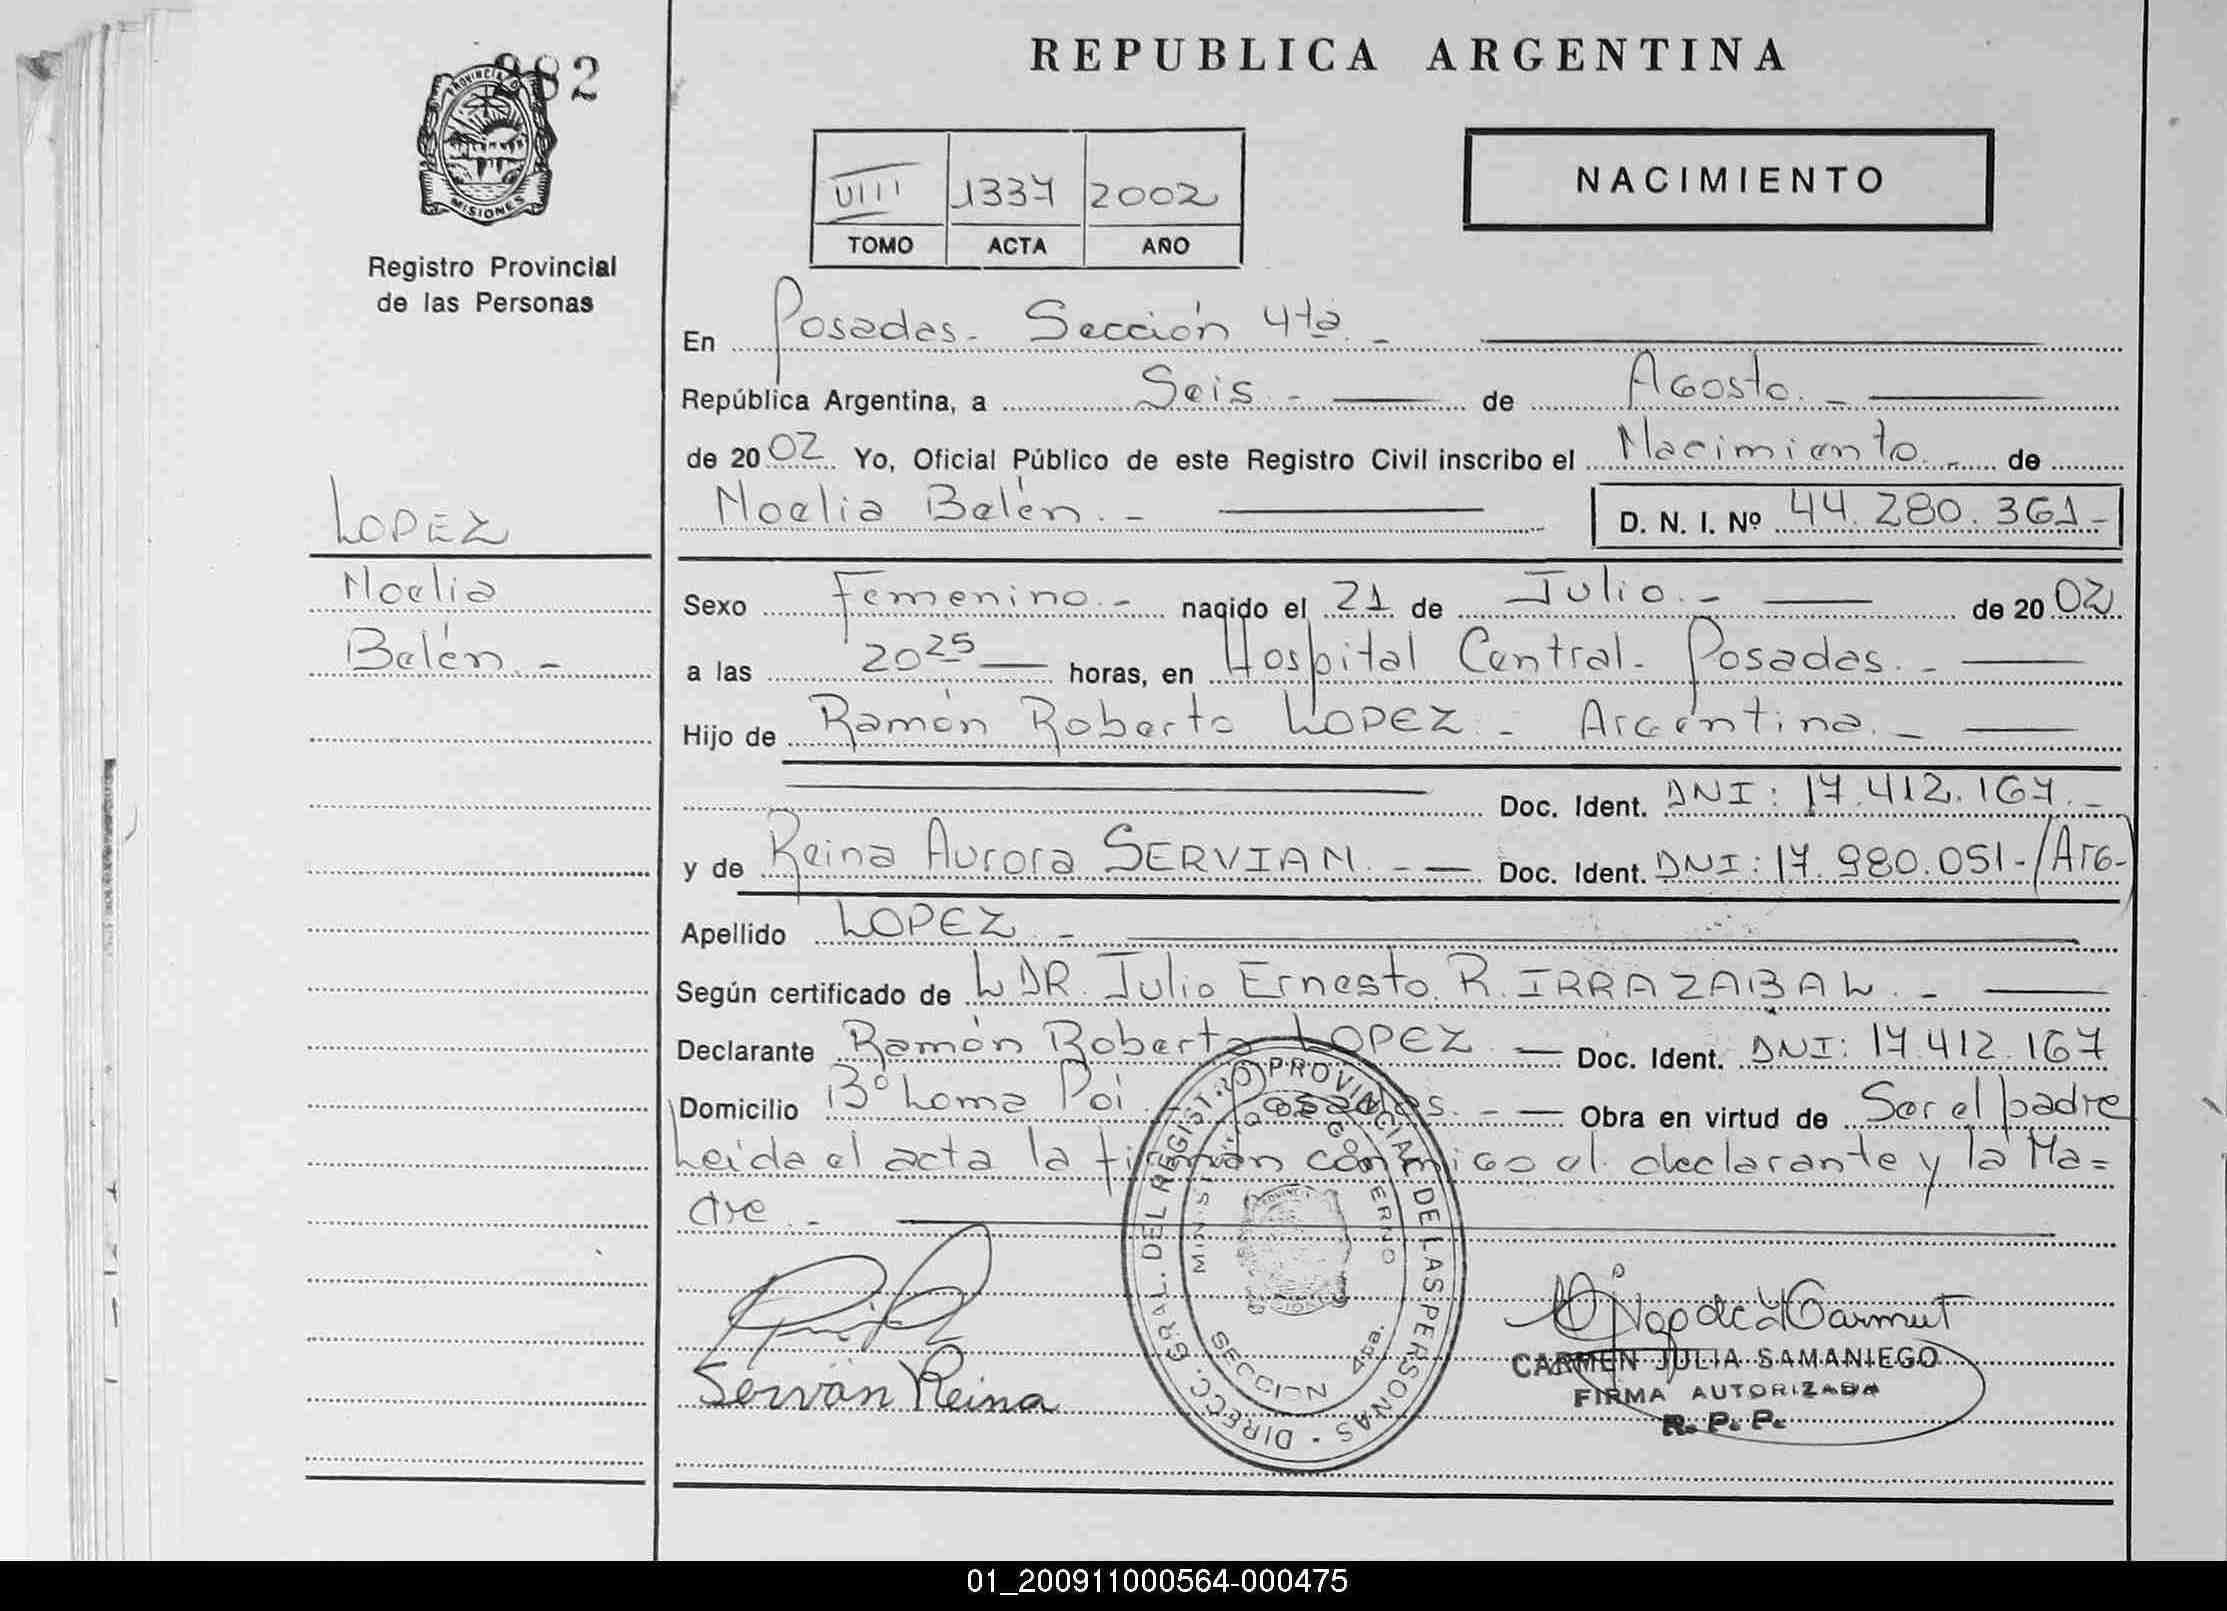 882
PROVINCIA D
MISIONES
Registro Provincial
de las Personas
REPUBLICA ARGENTINA
VIII 1337 2002
TOMO ACTA AÑO
NACIMIENTO
En Posadas - Sección 4ta. -
República Argentina, a Seis - de Agosto. -
de 2002 Yo, Oficial Público de este Registro Civil inscribo el Nacimiento. - de
Noelia Belén. -
D. N. I. Nº 44.280.361-
LOPEZ
Noelia
Belén. -
Sexo Femenino. - nacido el 21 de Julio. - de 2002
a las 20 25 horas, en Hospital Central - Posadas. -
Hijo de Ramón Roberto LOPEZ - Argentina. -
Doc. Ident. DNI: 17.412.167. -
y de Reina Aurora SERVIAN. - Doc. Ident. DNI: 17.980.051-(Arg-)
Apellido LOPEZ. -
Según certificado de L DR. Julio Ernesto. R. IRRAZABAL. -
Declarante Ramón Roberto LOPEZ - Doc. Ident. DNI: 17.412.167
Domicilio Bº Loma Poi. - Posadas. - Obra en virtud de Ser el padre
Leida el acta la firman conmigo el declarante y la Ma=
dre. -
DIRECC. GRAL. DEL REGISTRO PROVINCIAL DE LAS PERSONAS
GOBIERNO
SECCION 4ta.
Serván Reina
CARMEN JULIA SAMANIEGO
FIRMA AUTORIZADA
R. P. P.
01_200911000564-000475